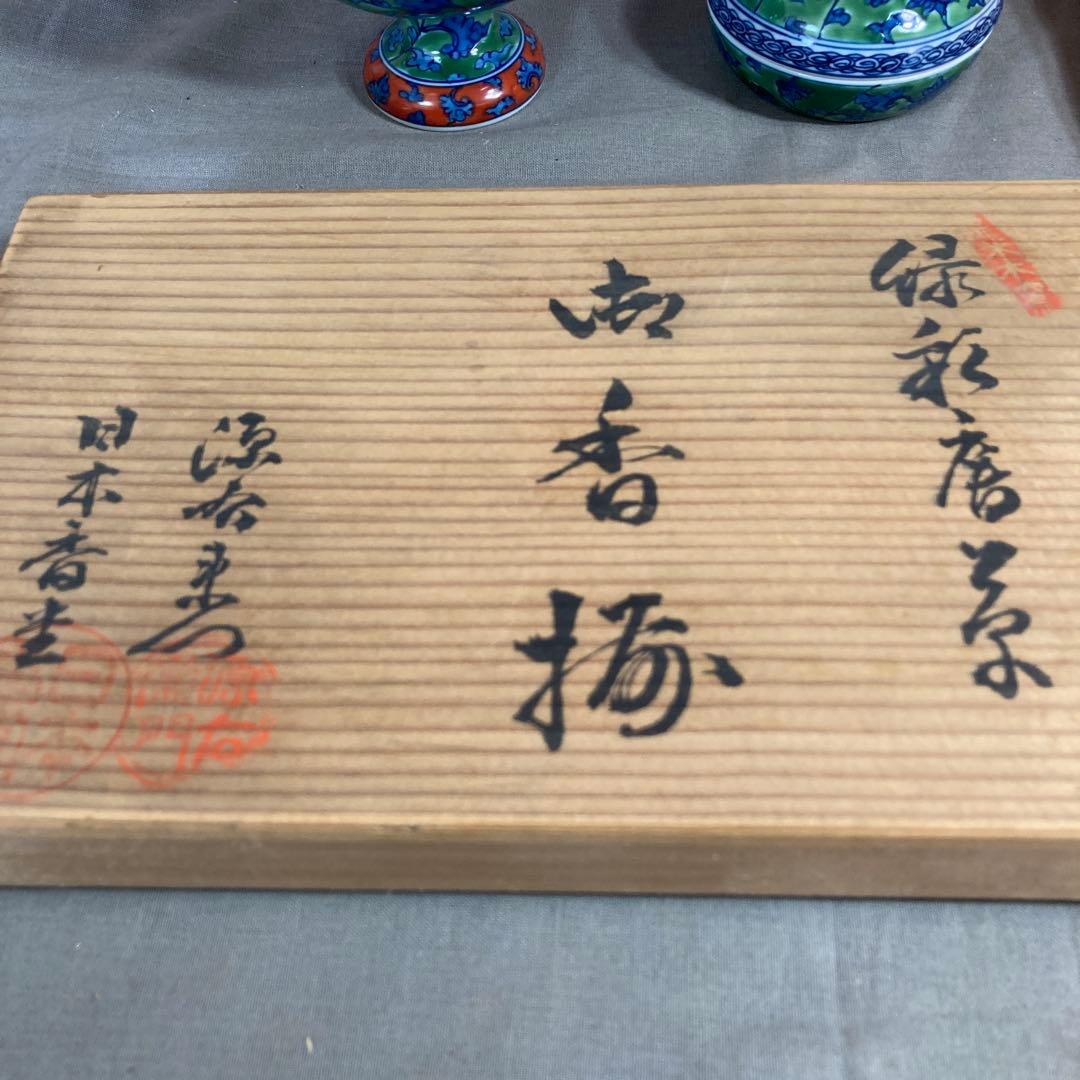 緑彩唐草
御香揃
源右衛門
日本香堂